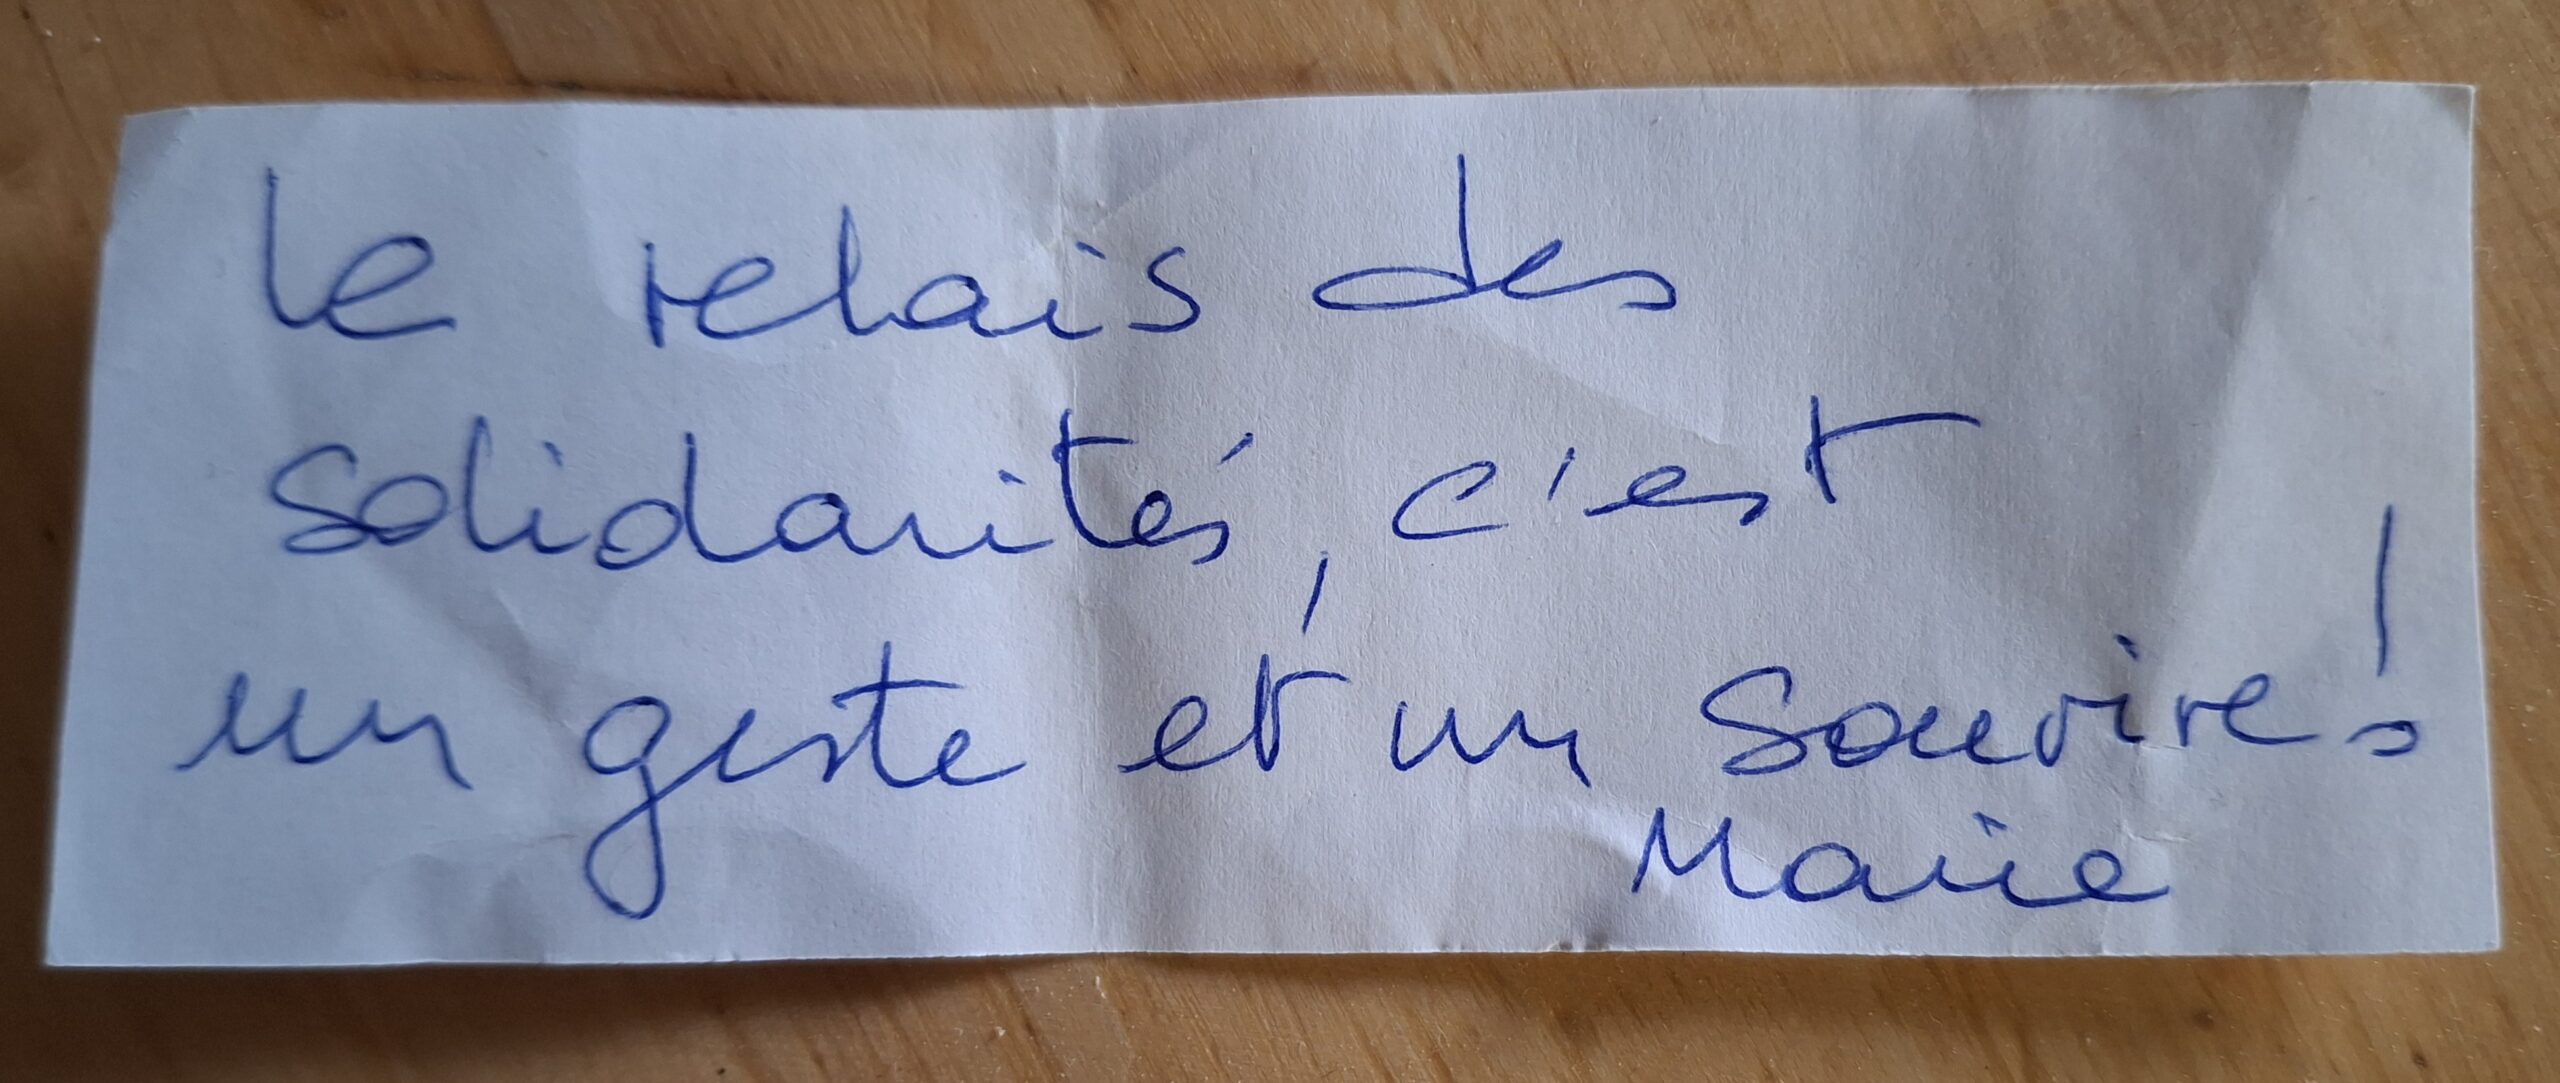 le relais des
solidarités, c'est
un geste et un sourire!
Marie